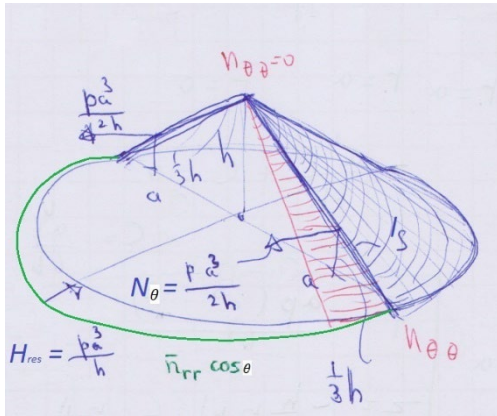 n_θθ=0
pa³/2h
1/3 h
h
a
N_θ = pa³/2h
a
l_s
n_θθ
H_res = pa³/h
n̄_rr cos θ
1/3 h